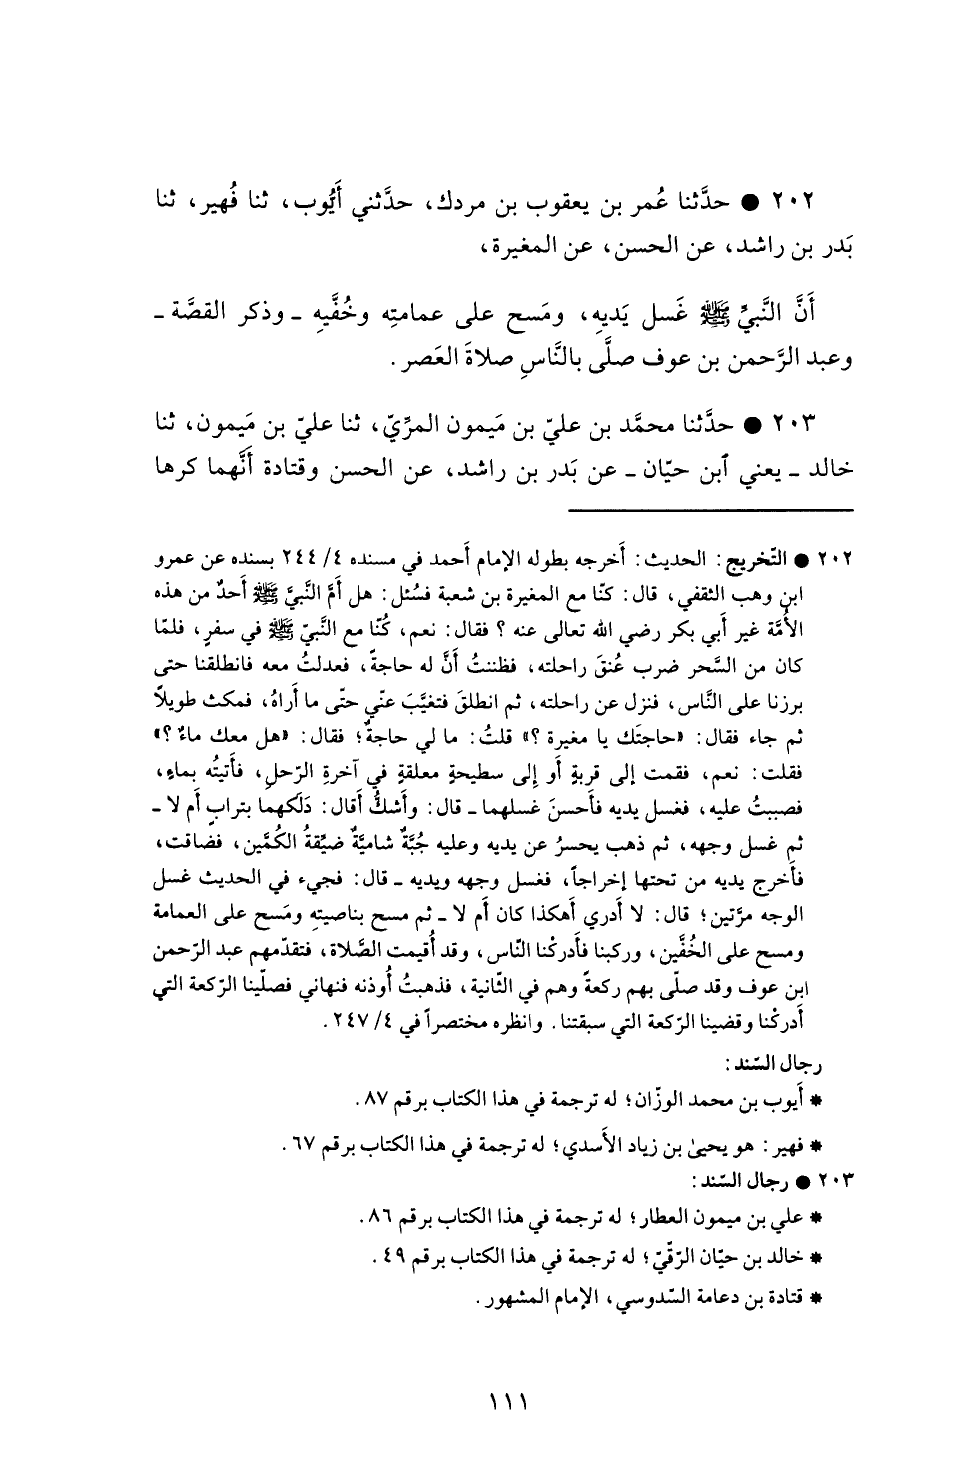 ٢٠٢ ● حدَّثنا عُمر بن يعقوب بن مردك، حدَّثني أَيُّوب، ثنا فُهير، ثنا
بَدر بن راشد، عن الحسن، عن المغيرة،
أَنَّ النَّبيَّ ﷺ غَسل يَديهِ، ومَسح على عمامتِه وخُفَّيهِ ـ وذكر القصَّة ـ
وعبد الرَّحمن بن عوف صلَّى بالنَّاسِ صلاةَ العَصر.
٢٠٣ ● حدَّثنا محمَّد بن عليّ بن مَيمون المرِّيّ، ثنا عليّ بن مَيمون، ثنا
خالد ـ يعني ٱبن حيّان ـ عن بَدر بن راشد، عن الحسن وقتادة أَنَّهما كرها
٢٠٢ ● التّخريج: الحديث: أَخرجه بطوله الإمام أَحمد في مسنده ٤/ ٢٤٤ بسنده عن عمرو
ابن وهب الثقفي، قال: كنّا مع المغيرة بن شعبة فسُئل: هل أَمَّ النَّبيَّ ﷺ أَحدٌ من هذه
الأُمَّة غير أَبي بكر رضي الله تعالى عنه ؟ فقال: نعم، كُنّا مع النَّبيّ ﷺ في سفرٍ، فلمّا
كان من السَّحر ضرب عُنقَ راحلته، فظننتُ أَنَّ له حاجةً، فعدلتُ معه فانطلقنا حتى
برزنا على النَّاس، فنزل عن راحلته، ثم انطلقَ فتغيَّبَ عنّي حتّى ما أَراهُ، فمكث طويلاً
ثم جاء فقال: «حاجتَك يا مغيرة ؟» قلتُ: ما لي حاجةٌ؛ فقال: «هل معك ماءٌ ؟»
فقلت: نعم، فقمت إلى قربةٍ أَو إِلى سطيحةٍ معلقةٍ في آخرةِ الرّحلِ، فأَتيتُه بماءٍ،
فصببتُ عليه، فغسل يديه فأَحسنَ غسلهما ـ قال: وأَشكُّ أَقال: دَلَكهما بترابٍ أَم لا ـ
ثم غسل وجهه، ثم ذهب يحسرُ عن يديه وعليه جُبَّةٌ شاميَّةٌ ضيِّقةُ الكُمَّين، فضاقت،
فأَخرج يديه من تحتها إخراجاً، فغسل وجهه ويديه ـ قال: فجيء في الحديث غسل
الوجه مرَّتين؛ قال: لا أَدري أَهكذا كان أَم لا ـ ثم مسح بناصيتِه ومَسح على العمامة
ومسح على الخُفَّين، وركبنا فأَدركْنا النّاس، وقد أُقيمت الصَّلاة، فتقدّمهم عبد الرّحمن
ابن عوف وقد صلّى بهم ركعةً وهم في الثّانية، فذهبتُ أُوذنه فنهاني فصلّينا الرّكعة التي
أَدركْنا وقضينا الرّكعة التي سبقتنا. وانظره مختصراً في ٤/ ٢٤٧.
رجال السّند:
* أَيوب بن محمد الوزّان؛ له ترجمة في هذا الكتاب برقم ٨٧.
* فهير: هو يحيىٰ بن زياد الأَسدي؛ له ترجمة في هذا الكتاب برقم ٦٧.
٢٠٣ ● رجال السّند:
* علي بن ميمون العطار؛ له ترجمة في هذا الكتاب برقم ٨٦.
* خالد بن حيّان الرّقّيّ؛ له ترجمة في هذا الكتاب برقم ٤٩.
* قتادة بن دعامة السّدوسي، الإمام المشهور.
١١١